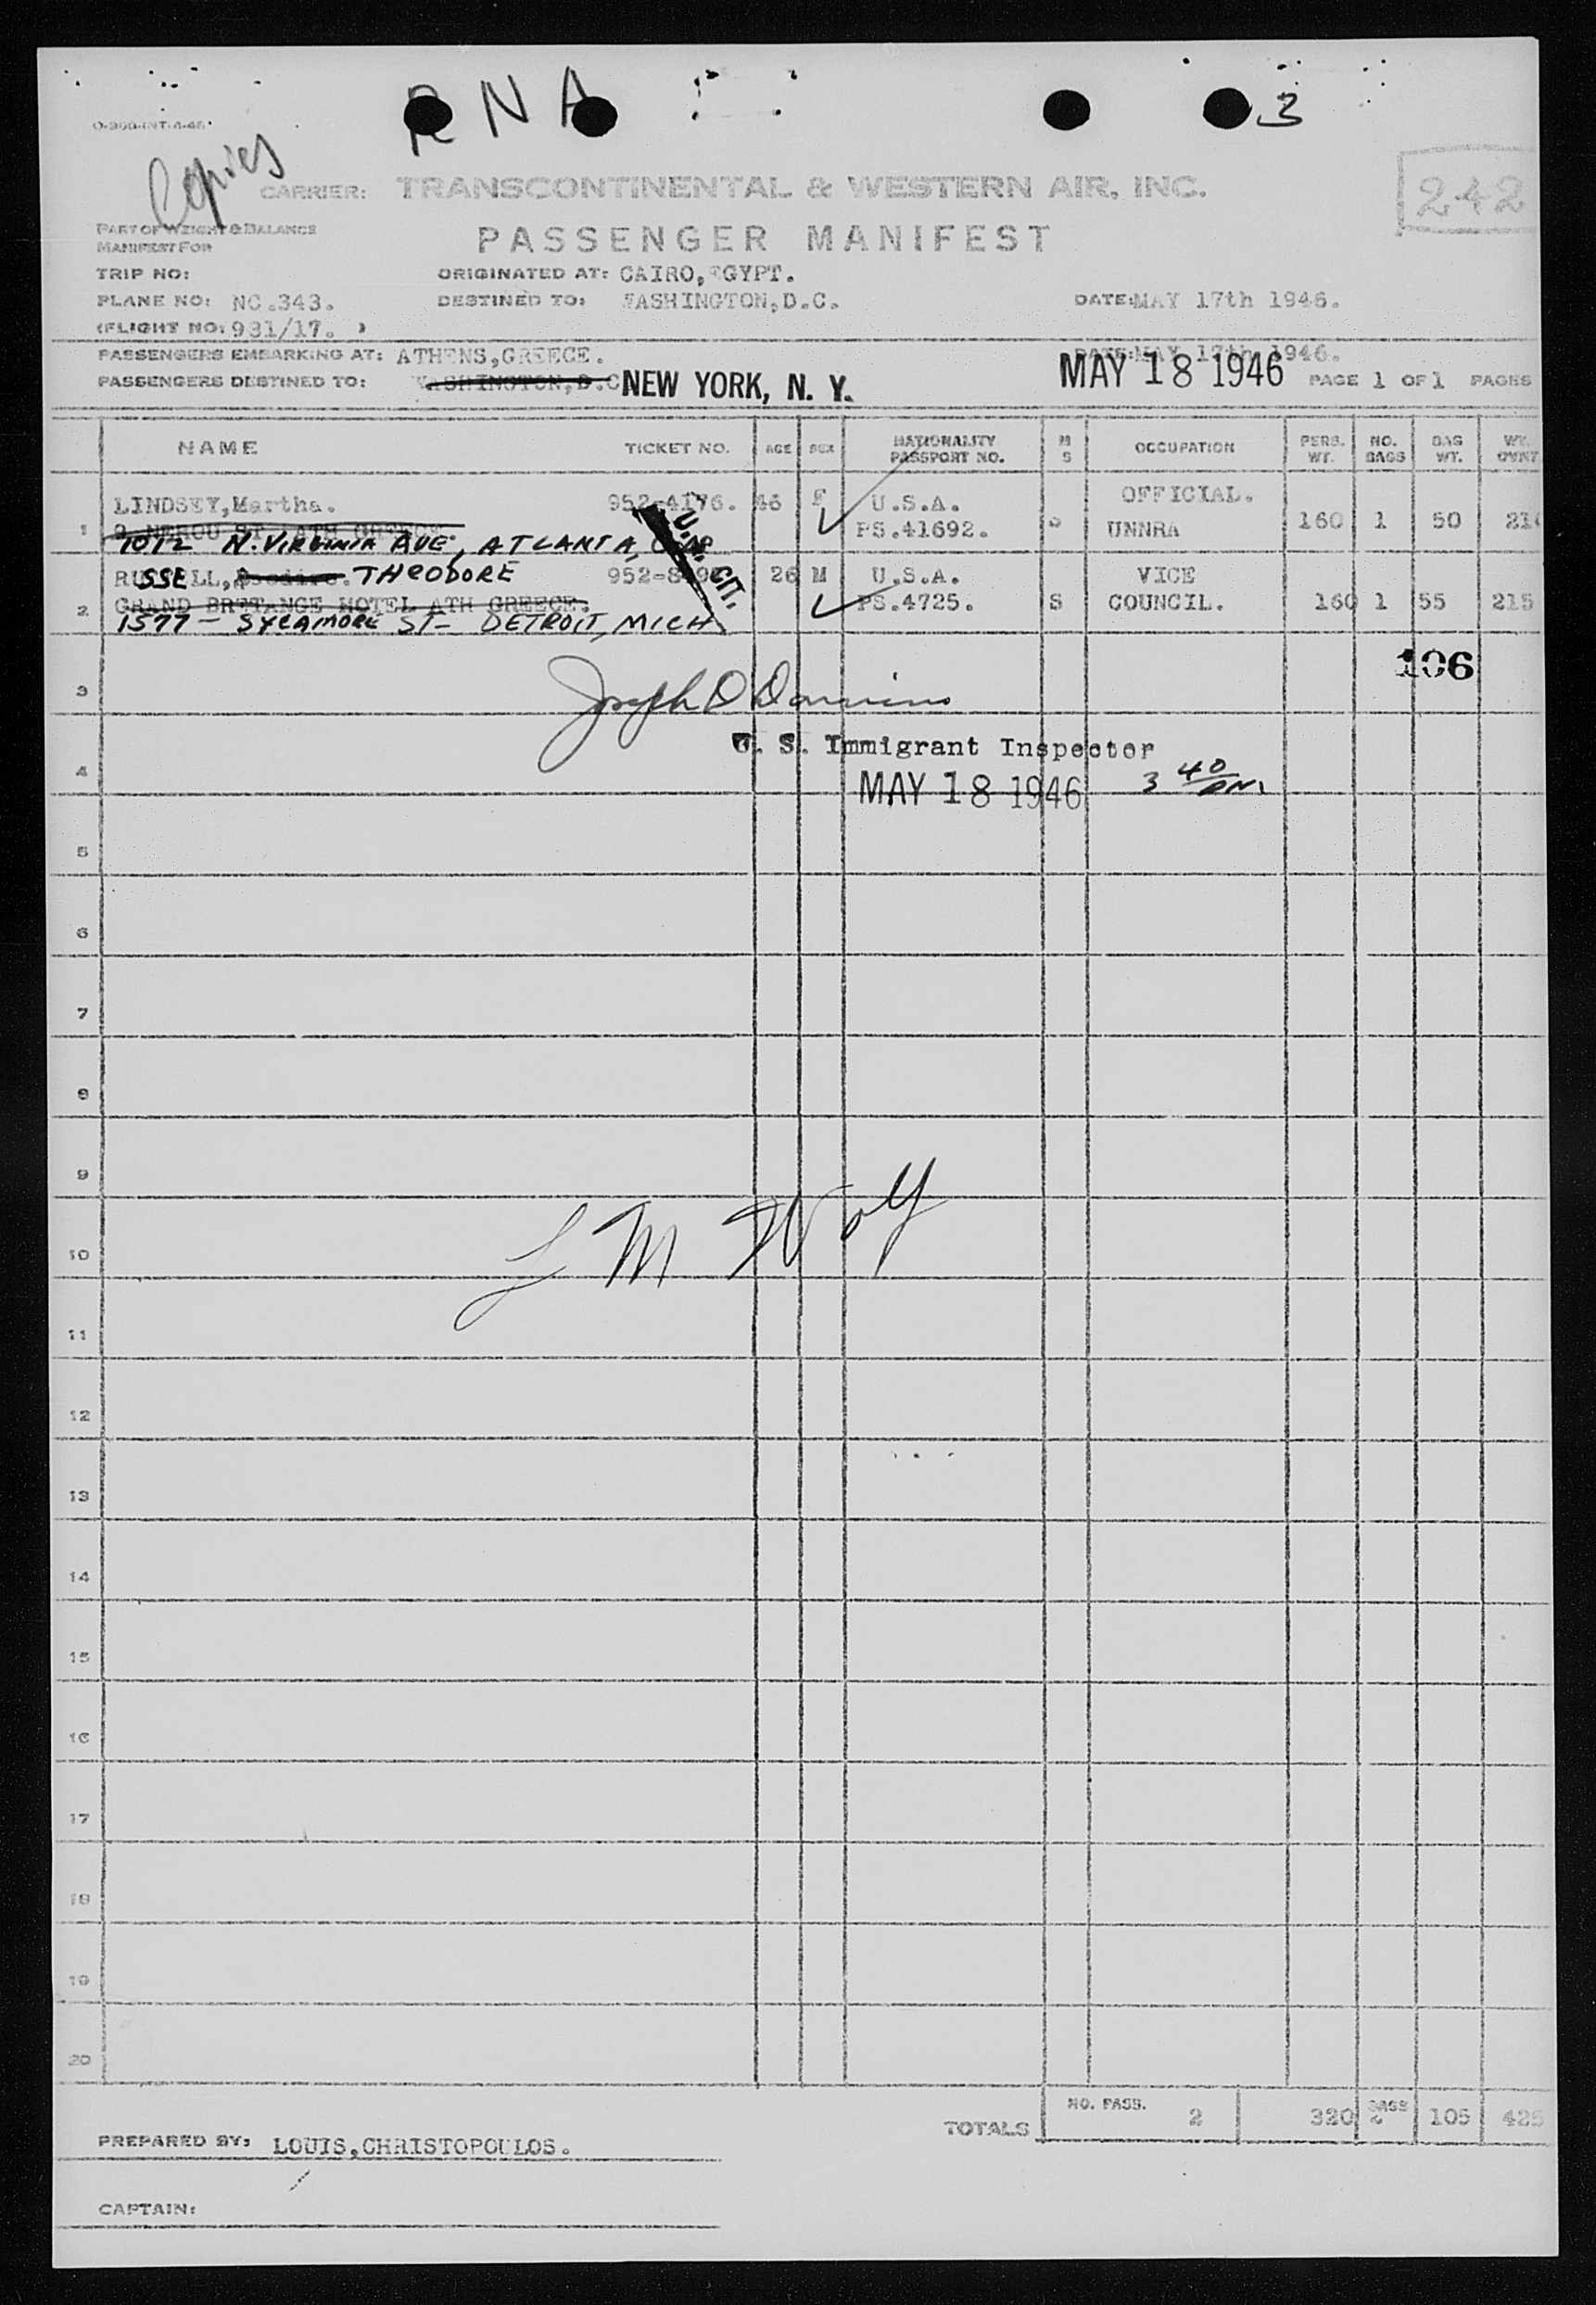 RNA 3
O-300-INT-4-46
Copies
CARRIER: TRANSCONTINENTAL & WESTERN AIR, INC.
242
PART OF WEIGHT & BALANCE
MANIFEST FOR
PASSENGER MANIFEST
TRIP NO: ORIGINATED AT: CAIRO, EGYPT.
PLANE NO: NC.343. DESTINED TO: WASHINGTON,D.C. DATE:MAY 17th 1946.
(FLIGHT NO: 931/17. )
PASSENGERS EMBARKING AT: ATHENS,GREECE. DATE:MAY 17th 1946.
PASSENGERS DESTINED TO: WASHINGTON,D.C NEW YORK, N. Y. MAY 18 1946 PAGE 1 OF 1 PAGES
NAME TICKET NO. AGE SEX NATIONALITY PASSPORT NO. M S OCCUPATION PERS. WT. NO. BAGS BAG WT. WT.
LINDSEY,Martha. 952-4176. 46 F U.S.A. OFFICIAL.
1 ST. ATH GREECE PS.41692. UNNRA 160 1 50 210
1012 N. VIRGINIA AVE, ATLANTA,
U.S. CIT.
RUSSELL, THEODORE 26 M U.S.A. VICE
2 GRAND BRTTANGE HOTEL ATH GREECE. PS.4725. S COUNCIL. 160 1 55 215
1577 - SYCAMORE ST- DETROIT, MICH
106
3
Joseph D
U. S. Immigrant Inspector
4
MAY 18 1946 3 40 PM
5
6
7
8
9
L M Wolf
10
11
12
13
14
15
16
17
18
19
20
TOTALS NO. PASS. 2 320 BAGS 2 105 425
PREPARED BY: LOUIS,CHRISTOPOULOS.
CAPTAIN: